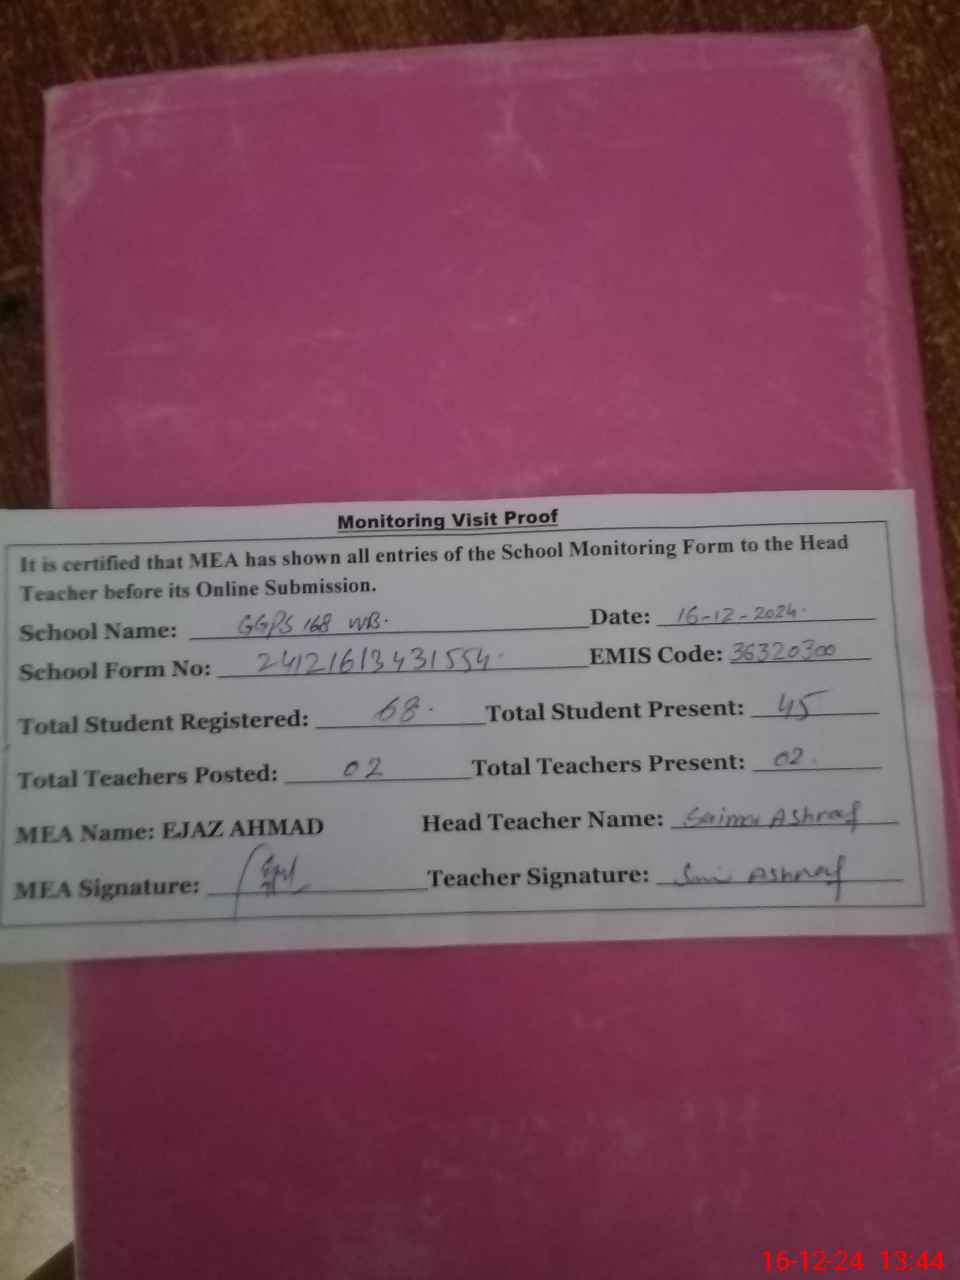 Monitoring Visit Proof
It is certified that MEA has shown all entries of the School Monitoring Form to the Head
Teacher before its Online Submission.
School Name: GGPS 168 WB. Date: 16-12-2024.
School Form No: 24121613431554. EMIS Code: 36320300
Total Student Registered: 68. Total Student Present: 45
Total Teachers Posted: 02 Total Teachers Present: 02.
MEA Name: EJAZ AHMAD Head Teacher Name: Saima Ashraf
MEA Signature: Teacher Signature: Ashraf
16-12-24 13:44